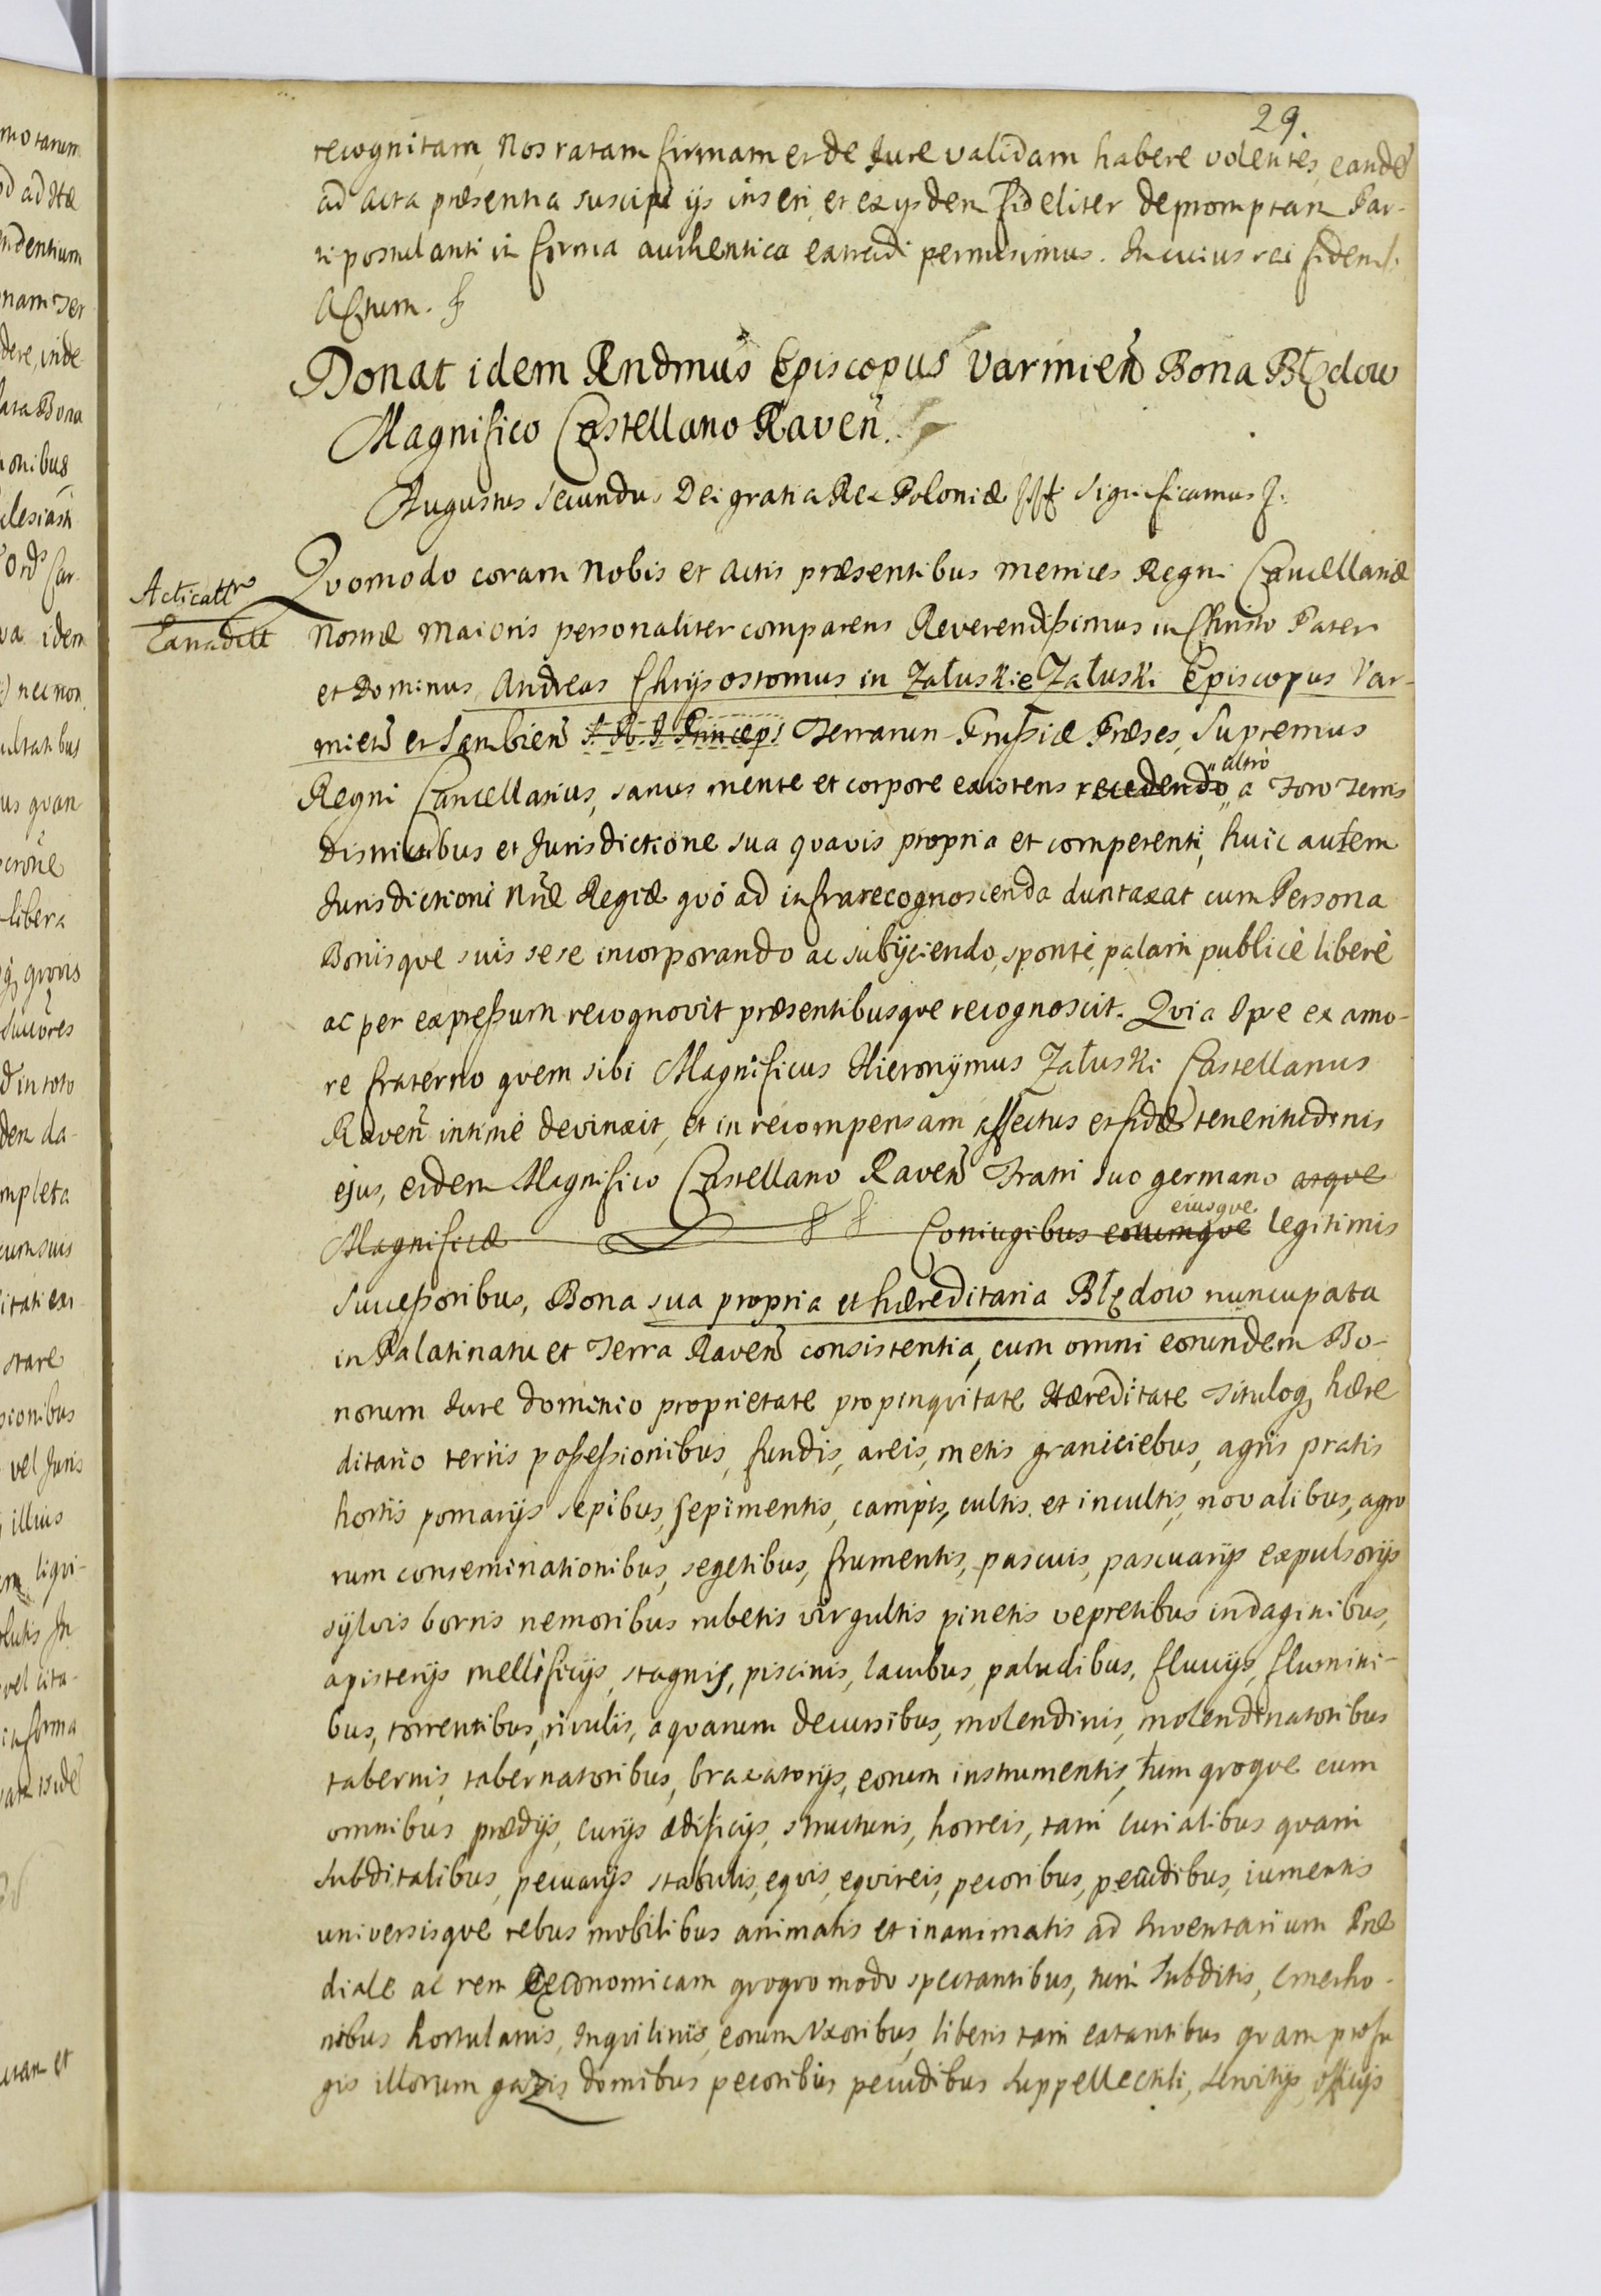 29.
recognitam, Nos ratam firmam et de Jure validam habere volentes, eandẽ
ad acta præsentia suscipi ijs inseri, et ex ijsdem fideliter depromptam Par-
ti postulanti in forma authentica extradi permisimus. In cuius rei fidem
Actum.
Donat idem Rndmus Episcopus Varmien̄ Bona Błędow
Magnifico Castellano Raven̄.
Augustus Secundus Dei gratia Rex Poloniæ significamus
Acticatt
Extradtt
Quomodo coram Nobis et Actis præsentibus metrices Regni Cancellariæ
Nostræ Maioris personaliter comparens Reverendißimus in Christo Pater
et Dominus Andreas Chrysostomus in Załuskie Załuski Episcopus Var-
mien̄ et Sambien̄ S. R. I. Princeps Terrarum Prußiæ Præses, Supremus
Regni Cancellarius, sanus mente et corpore existens recedendo "altrò" à Foro Terris
districtibus et Jurisdictione sua quavis propria et competenti, huic autem
Jurisdictioni Nræ Regiæ quò ad infrarecognoscenda duntaxat cum Persona
Bonisque suis sese incorporando ac subijciendo, spontè, palàm publicè liberè
ac per expreßum recognovit præsentibusque recognoscit. Quia Ipse ex amo-
re fraterno quem sibi Magnificus Hieronymus Załuski Castellanus
Raven̄ intimè devinxit, et in recompensam affectus et fidæ teneritudinis
ejus, eidem Magnifico Castellano Raven̄ Fratri suo germano atque
Magnificæ Coniugibus eorumque eiusque legitimis
Succeßoribus, Bona sua propria et hæreditaria Błędow nuncupata
in Palatinatu et Terra Raven̄ consistentia, cum omni eorundem Bo-
norum Jure dominio proprietate propinquitate Hæreditate Tituloq hære
ditario terris poßeßionibus, fundis, areis, metis graniciebus, agris pratis
hortis pomarijs sepibus, sepimentis, campis, cultis et incultis, novalibus, agro
rum conseminationibus, segetibus, frumentis, pascuis, pascuarijs expulsorijs
sylvis borris nemoribus rubetis virgultis pinetis vepretibus indaginibus,
apisterijs mellificijs, stagnis, piscinis, lacubus, paludibus, fluvijs, flumini-
bus, torrentibus, rivulis, aquarum decursibus, molendinis, molendinatoribus
tabernis, tabernatoribus, braxatorijs, eorum instrumentis, tum quoque cum
omnibus prædijs, curijs ædificijs, structuris, horreis, tam curialibus quam
subditalibus, pecuarijs stabulis, equis, equireis, pecoribus, pecudibus, iumentis
universisque rebus mobilibus animatis et inanimatis ad Inventarium Præ
diale ac rem œconomicam quoquo modo spectantibus, tum Subditis, Cmetho-
nibus hortulanis, Inquilinis, eorum Uxoribus, liberis tam extantibus quam profu
gis illorum gazis domibus pecoribus pecudibus suppellectili, servitijs, officijs